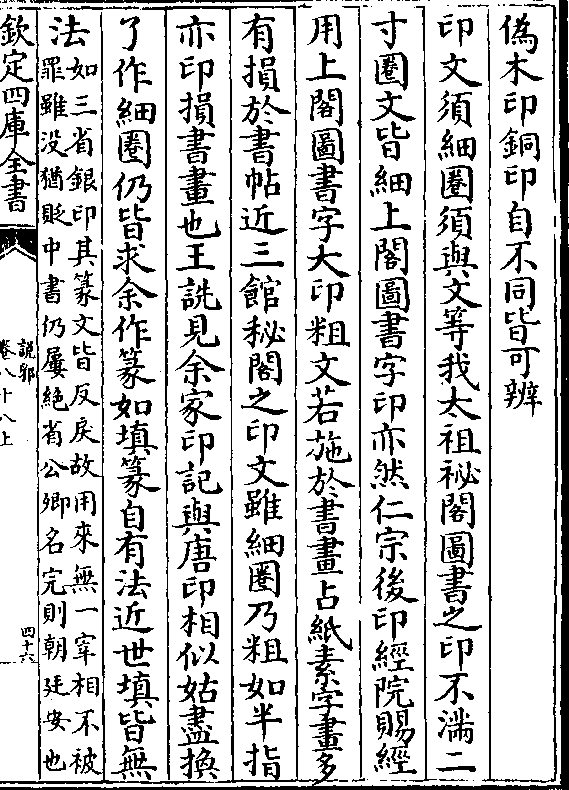 偽木印銅印自不同皆可辨
印文須細圏須與文等我太祖祕閣圖書之印不滿二
寸圏文皆細上閣圖書字印亦然仁宗後印經院賜經
用上閣圖書字大印粗文若施於書畫占紙素字畫多
有損於書帖近三館秘閣之印文雖細圏乃粗如半指
亦印損書畫也王詵見余家印記與唐印相似姑盡換
了作細圏仍皆求余作篆如填篆自有法近世填皆無
法如三省銀印其篆文皆反戾故用來無一宰相不被
罪雖没猶貶中書仍屢絶省公卿名完則朝廷安也
欽定四庫全書
說郛
卷八十八上
四十六